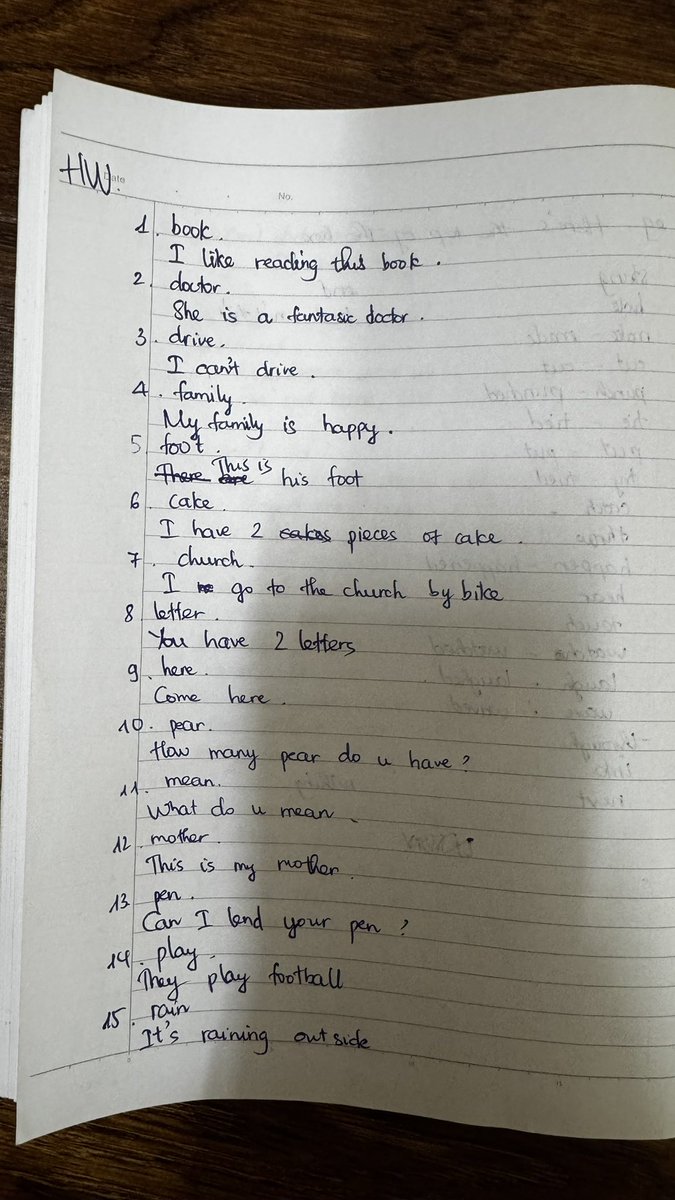 HW.
Date
No.
1. book.
I like reading this book.
2. doctor.
She is a fantasic doctor.
3. drive.
I can't drive.
4. family.
My family is happy.
5 foot.
There are This is his foot
6. cake.
I have 2 cakes pieces of cake.
7. church.
I go to the church by bike
8 letter.
You have 2 letters
9. here.
Come here.
10. pear.
How many pear do u have?
11. mean.
What do u mean.
12. mother.
This is my mother.
13 pen.
Can I lend your pen?
14. play.
They play football
15. rain
It's raining outside